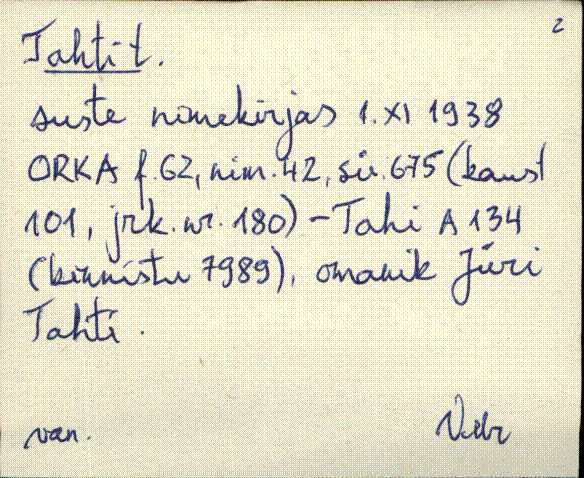 2
Tahti t.
suste nimekirjas 1.XI 1938
ORKA f.62, nim.42, sü.675 (kaust
101, jrk.nr.180) - Tahi A 134
(kinnistu 7989), omanik Jüri
Tahti.
van.